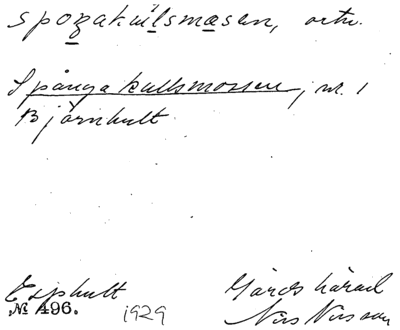 spoꞑakúlsmosen, ortn.
Spångakullsmossen, nr. 1
Björnhult
Esphult Gärds härad
№ 496. 1929 Nils Nilsson